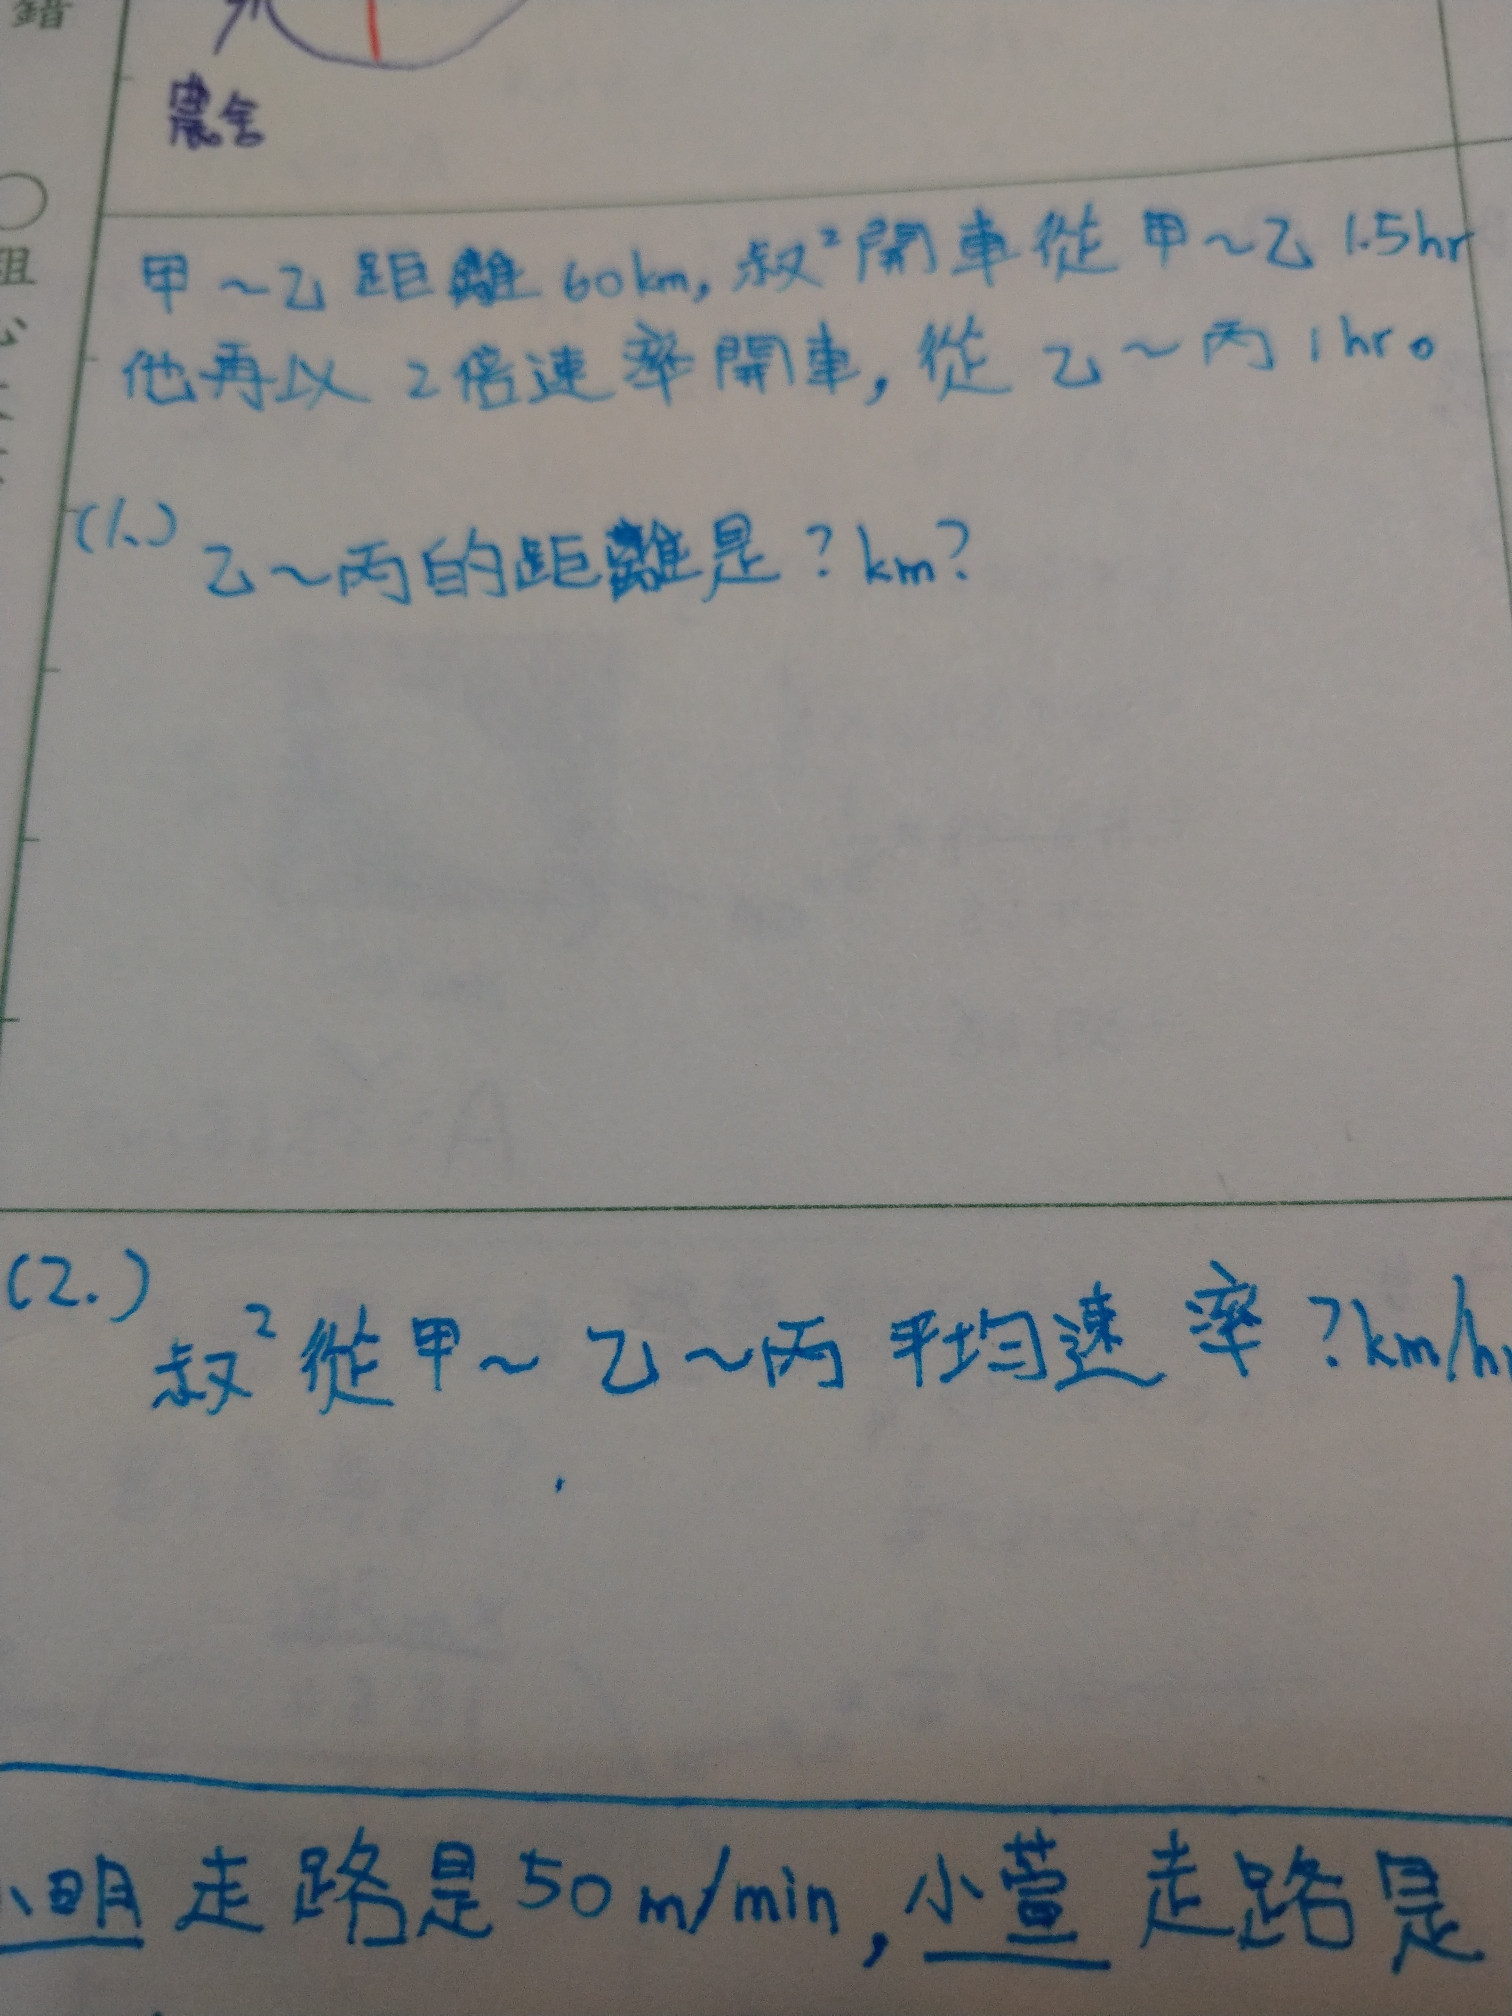 錯
農舍
甲～乙距離60km, 叔²開車從甲～乙1.5hr
他再以2倍速率開車, 從乙～丙1hr。
(1.)
乙～丙的距離是?km?
(2.)
叔²從甲～乙～丙平均速率?km/h
小明走路是50m/min, 小萱走路是